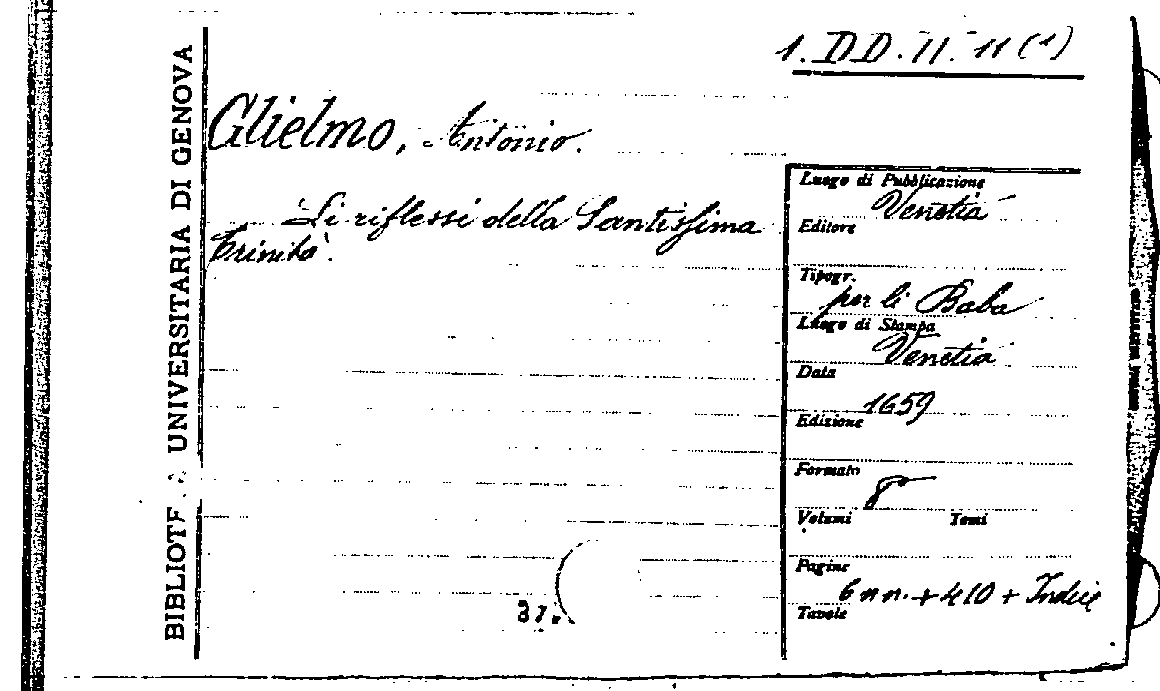 BIBLIOTECA UNIVERSITARIA DI GENOVA
1. DD. II. 11 (1)
Glielmo, Antonio.
Li riflessi della Santissima
Trinità.
Luogo di Pubblicazione
Venetia
Editore
Tipogr.
per li Baba
Luogo di Stampa
Venetia
Data
1659
Edizione
Formato
8°
Volumi Tomi
Pagine
6 nn. + 410 + Indice
Tavole